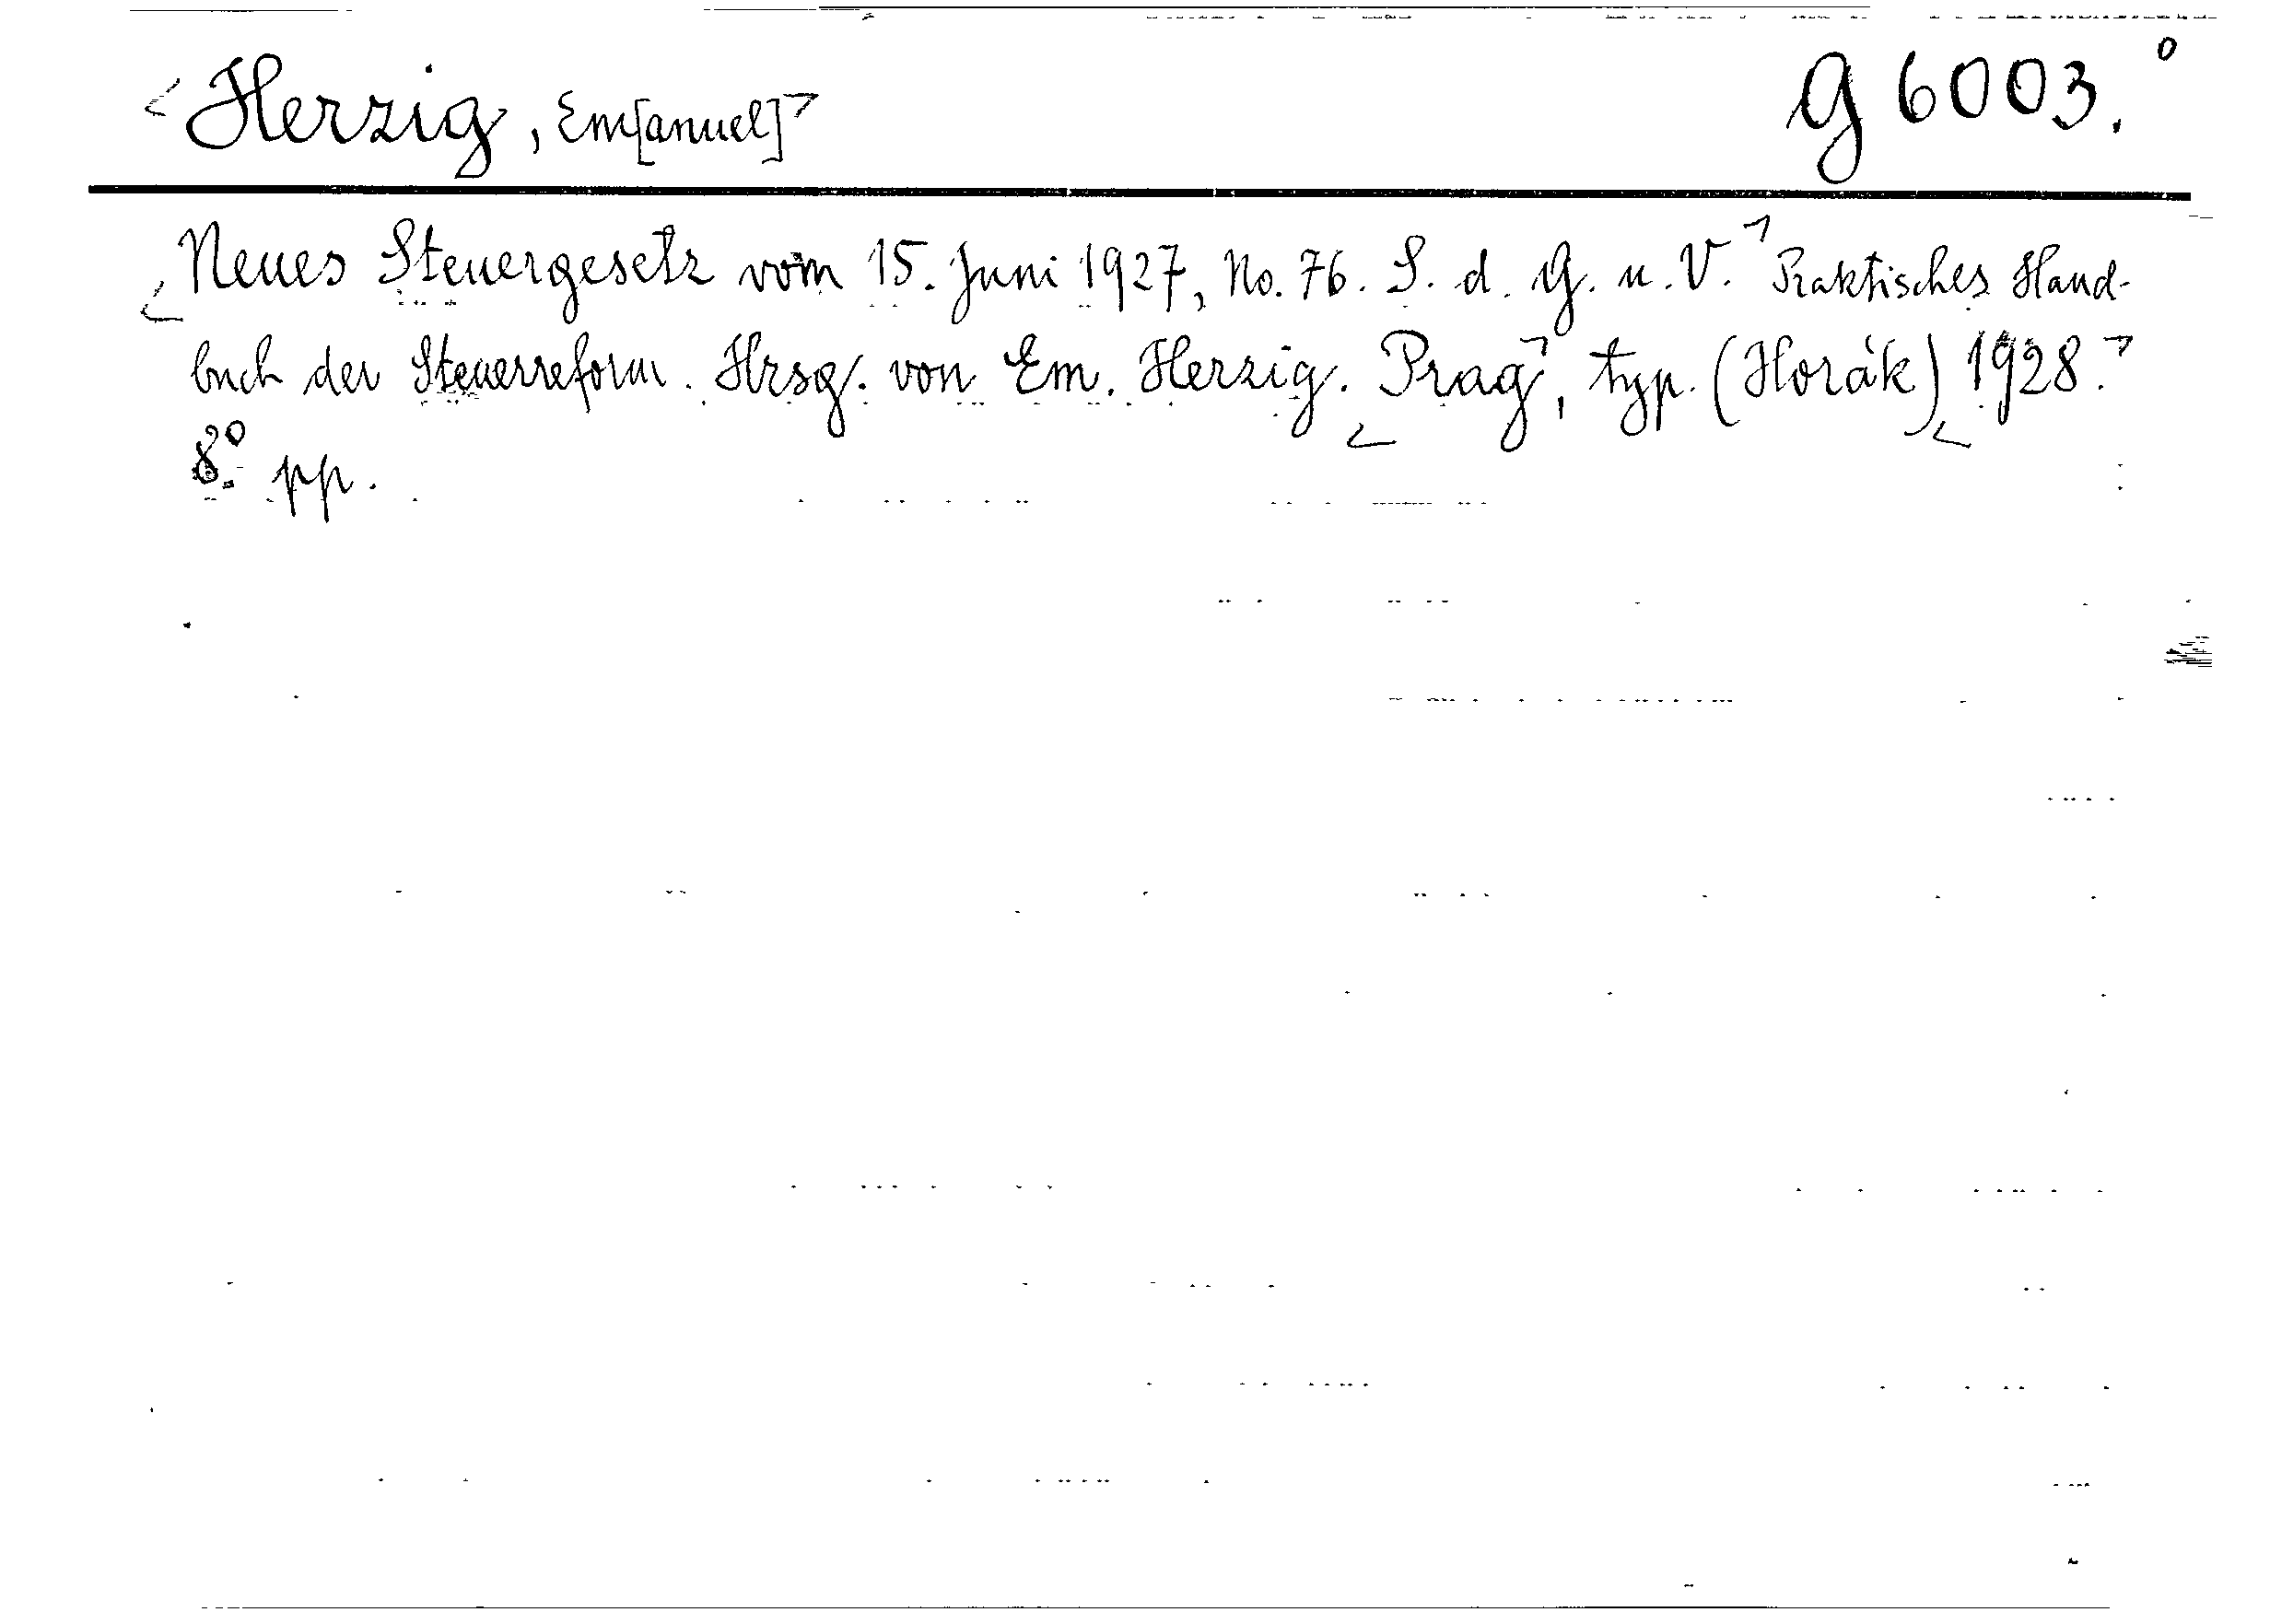 Herzig, Em[anuel]
G 6003.°
Neues Steuergesetz vom 15. Juni 1927, No. 76. S. d. G. u. V. Praktisches Hand-
buch der Steuerreform. Hrsg. von Em. Herzig. Prag, typ. (Horák) 1928.
8° pp.